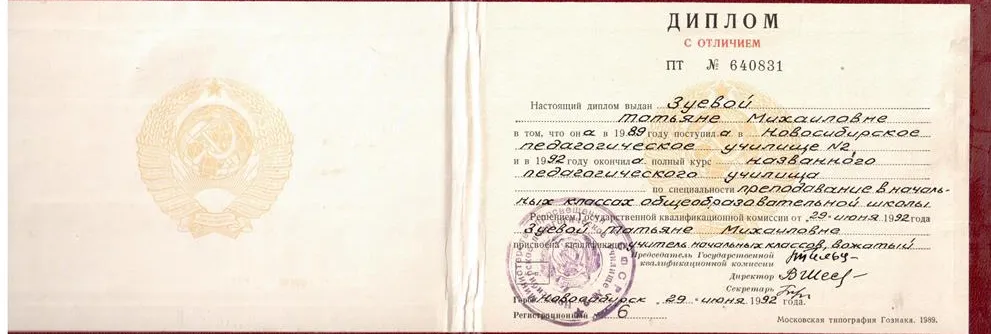 ДИПЛОМ
С ОТЛИЧИЕМ
ПТ № 640831
Настоящий диплом выдан Зуевой
Татьяне Михаиловне
в том, что она в 1989 году поступила в Новосибирское
педагогическое училище №2
и в 1992 году окончила полный курс названного
педагогического училища
по специальности преподавание в началь-
ных классах общеобразовательной школы
Решением Государственной квалификационной комиссии от „29" июня 1992 года
Зуевой Татьяне Михаиловне
присвоена квалификация учитель начальных классов, вожатый
Председатель Государственной
квалификационной комиссии
Директор
Секретарь
Город Новосибирск „29" июня 1992 года.
Регистрационный № 6
Московская типография Гознака. 1989.